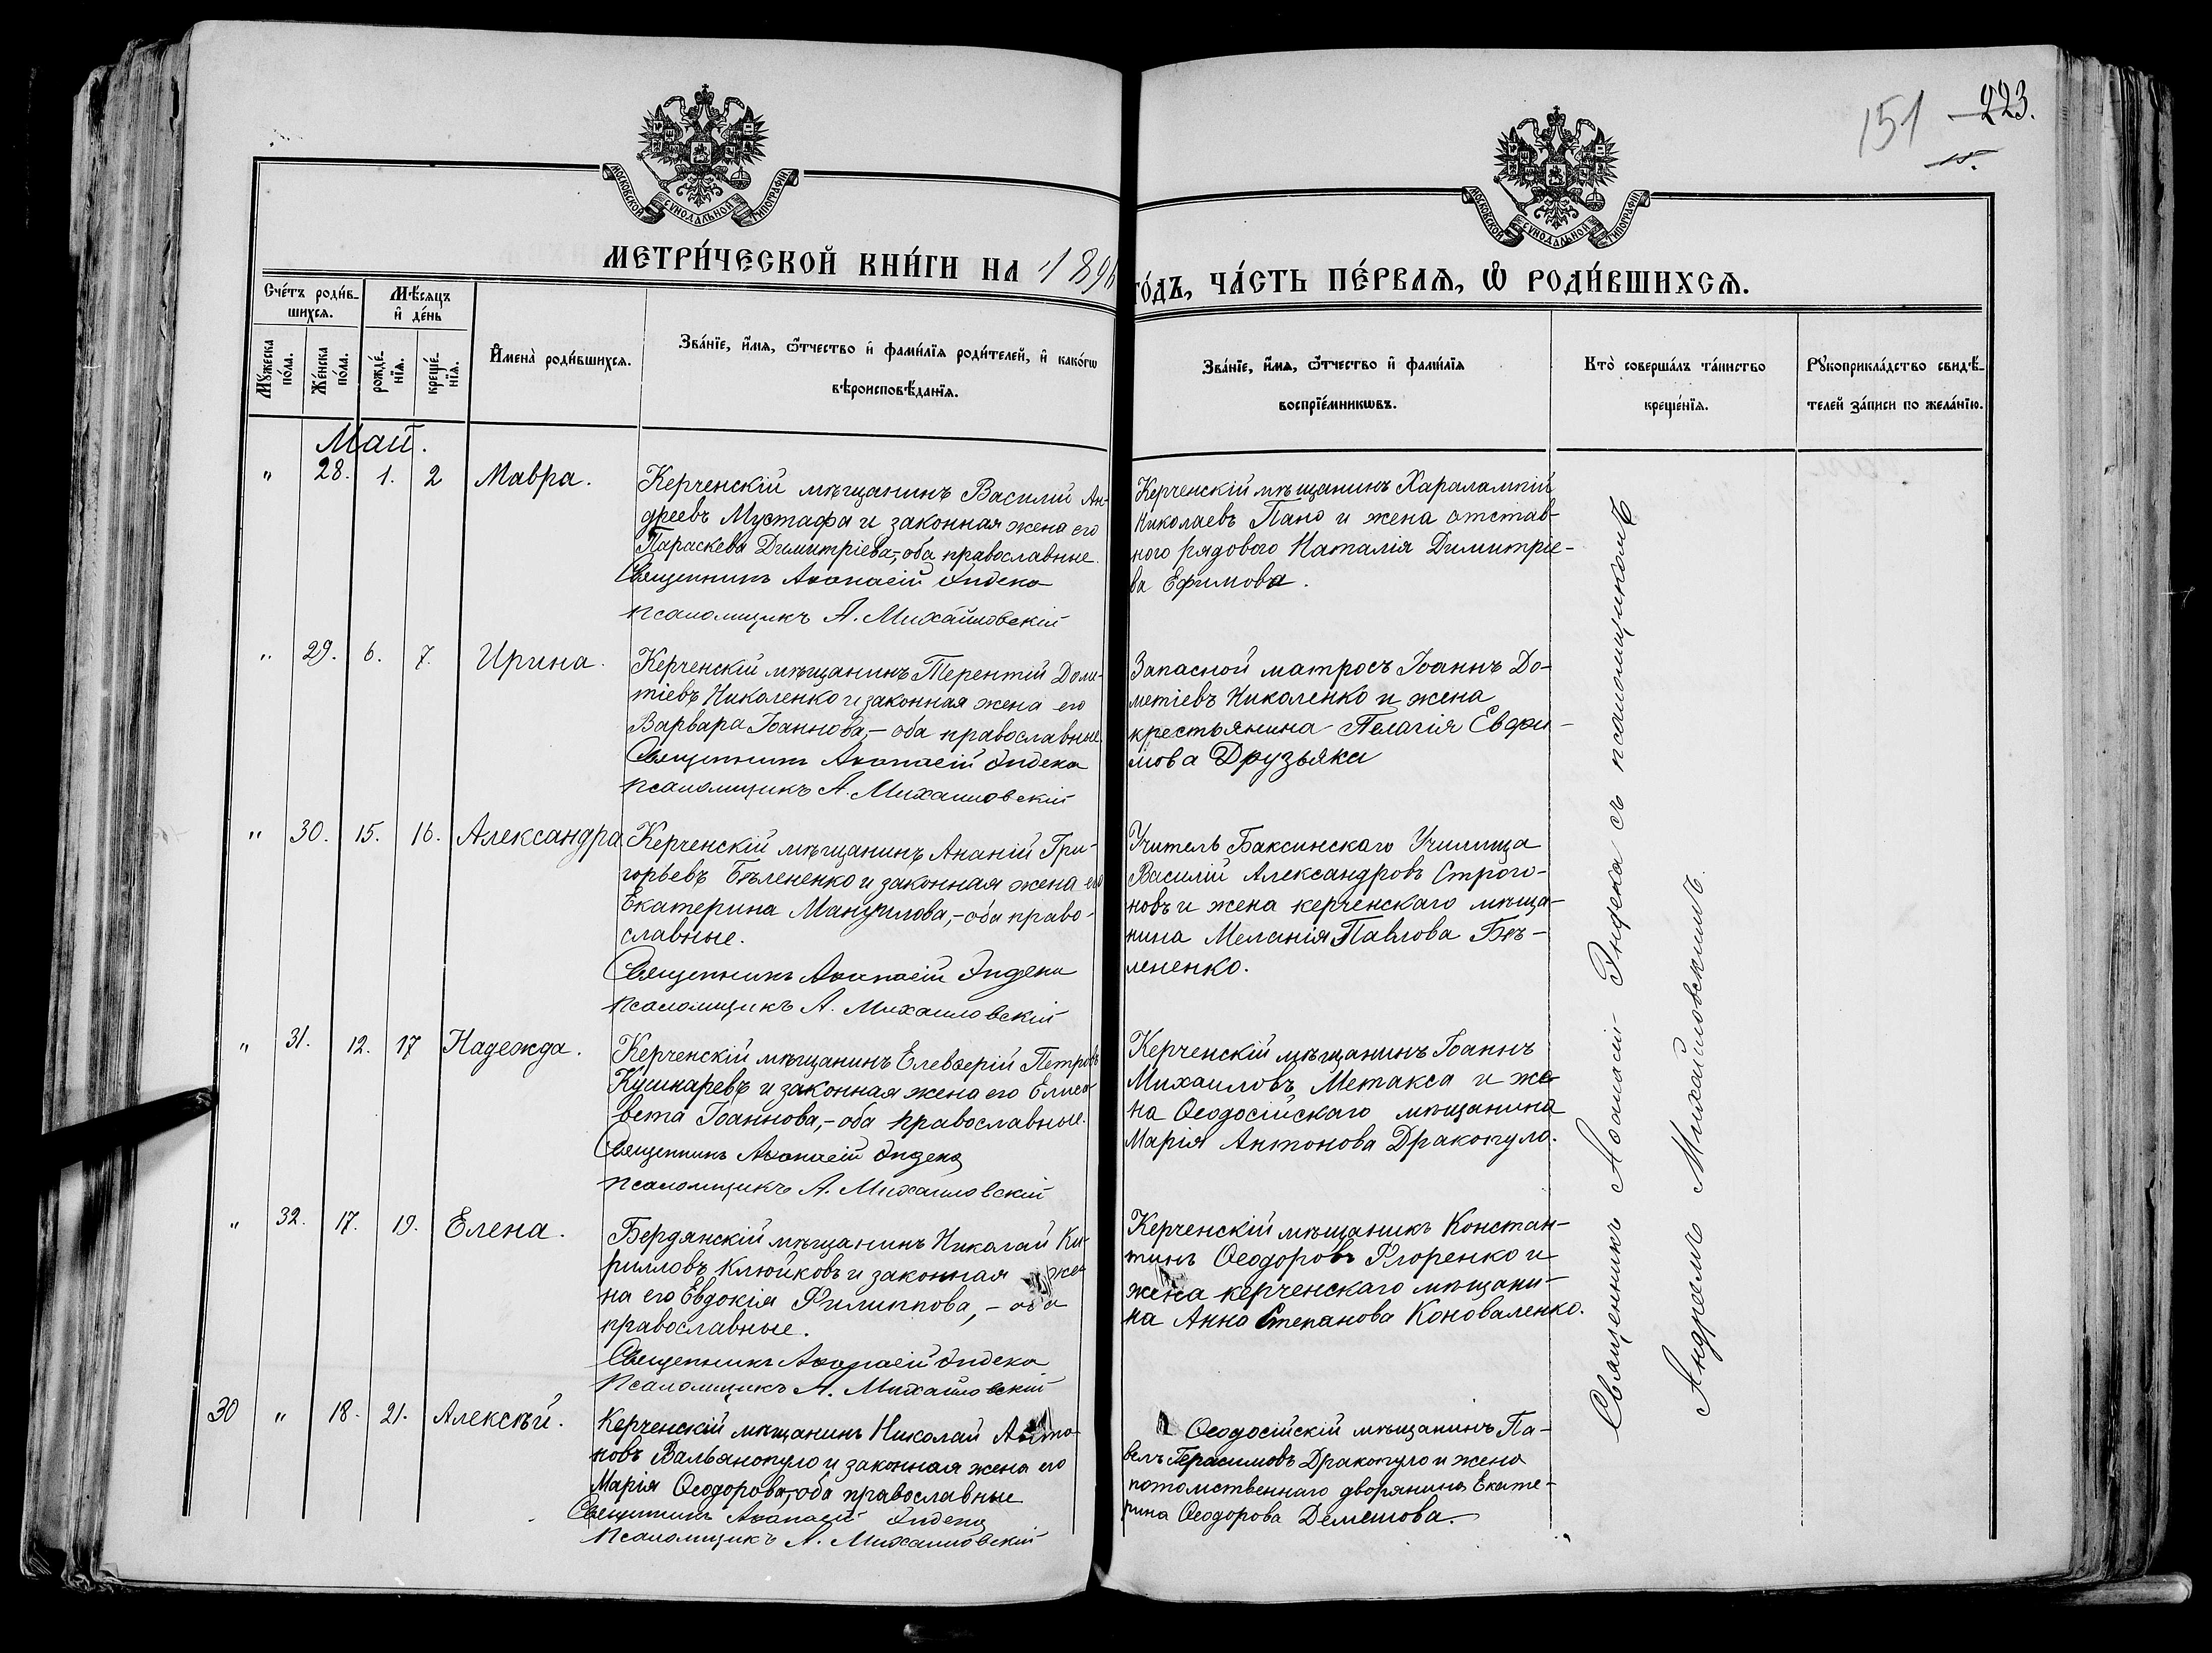 151 223.
15.
МОСКОВСКОЙ СѴНОДАЛЬНОЙ ТИПОГРАФІИ
МОСКОВСКОЙ СѴНОДАЛЬНОЙ ТИПОГРАФІИ
МЕТРИ́ЧЕСКОЙ КНИ́ГИ НА 1896
ГО́ДЪ, ЧА́СТЬ ПЕ́РВАѦ, Ѡ҆ РОДИ́ВШИХСѦ.
Сче́тъ роди́в-
шихсѧ.
Мꙋжеска по́ла.
Же́нска по́ла.
Мѣ́сѧцъ
и҆ де́нь
рожде́-
нїѧ.
креще́-
нїѧ.
И҆мена̀ роди́вшихсѧ.
Зва́нїе, и҆́мѧ, ѻ҆́тчество и҆ фами́лїѧ роди́телей, и҆ како́гѡ
вѣроисповѣ́данїѧ.
Зва́нїе, и҆́мѧ, ѻ҆́тчество и҆ фами́лїѧ
воспрїе́мникѡвъ.
Кто̀ соверша́лъ та́инство
креще́нїѧ.
Рꙋкоприкла́дство свидѣ́-
телей за́писи по жела́нїю.
Май.
" 28. 1. 2 Мавра.
Керченскій мѣщанинъ Василій Ан-
дреевъ Мустафа и законная жена его
Параскева Димитріева,-оба православные.
Священникъ Аѳанасій Индека
псаломщикъ А. Михайловскій
Керченскій мѣщанинъ Харалампій
Николаевъ Пано и жена отстав-
ного рядового Наталія Димитріе-
ва Ефимова.
" 29. 6. 7. Ирина.
Керченскій мѣщанинъ Терентій Доме-
тіевъ Николенко и законная жена его
Варвара Іоаннова,- оба православные.
Священникъ Аѳанасій Индека
псаломщикъ А. Михайловскій
Запасной матросъ Іоаннъ До-
метіевъ Николенко и жена
крестьянина Пелагія Евфи-
мова Друзьяка
" 30. 15. 16. Александра
Керченскій мѣщанинъ Ананій Гри-
горьевъ Бѣлененко и законная жена его
Екатерина Мануилова,-оба право-
славные.
Священникъ Аѳанасій Индека
псаломщикъ А. Михайловскій
Учитель Баксинскаго Училища
Василій Александровъ Строго-
новъ и жена керченскаго мѣща-
нина Меланія Павлова Бѣ-
лененко.
" 31. 12. 17 Надежда.
Керченскій мѣщанинъ Елевѳерій Петровъ
Кушнаревъ и законная жена его Елиса-
вета Іоаннова,-оба православные.
Священникъ Аѳанасій Индека
псаломщикъ А. Михайловскій
Керченскій мѣщанинъ Іоаннъ
Михаиловъ Метакса и же-
на Ѳеодосійскаго мѣщанина
Марія Антонова Дракопуло.
" 32. 17. 19. Елена.
Бердянскій мѣщанинъ Николай Ки-
рилловъ Клюйковъ и законная же-
на его Евдокія Филиппова,- оба
православные.
Священникъ Аѳанасій Индека
Псаломщикъ А. Михайловскій
Керченскій мѣщанинъ Констан-
тинъ Ѳеодоровъ Ягоренко и
жена керченскаго мѣщани-
на Анна Степанова Коноваленко.
30 " 18. 21. Алексѣй.
Керченскій мѣщанинъ Николай Анто-
новъ Вальянопуло и законная жена его
Марія Ѳеодорова,-оба православные
Священникъ Аѳанасій Индека
Псаломщикъ А. Михайловскій
Ѳеодосійскій мѣщанинъ Па-
велъ Герасимовъ Дракопуло и жена
потомственнаго дворянина Екате-
рина Ѳеодорова Демешова.
Священникъ Аѳанасій Индека съ псаломщикомъ
Андреемъ Михайловскимъ.